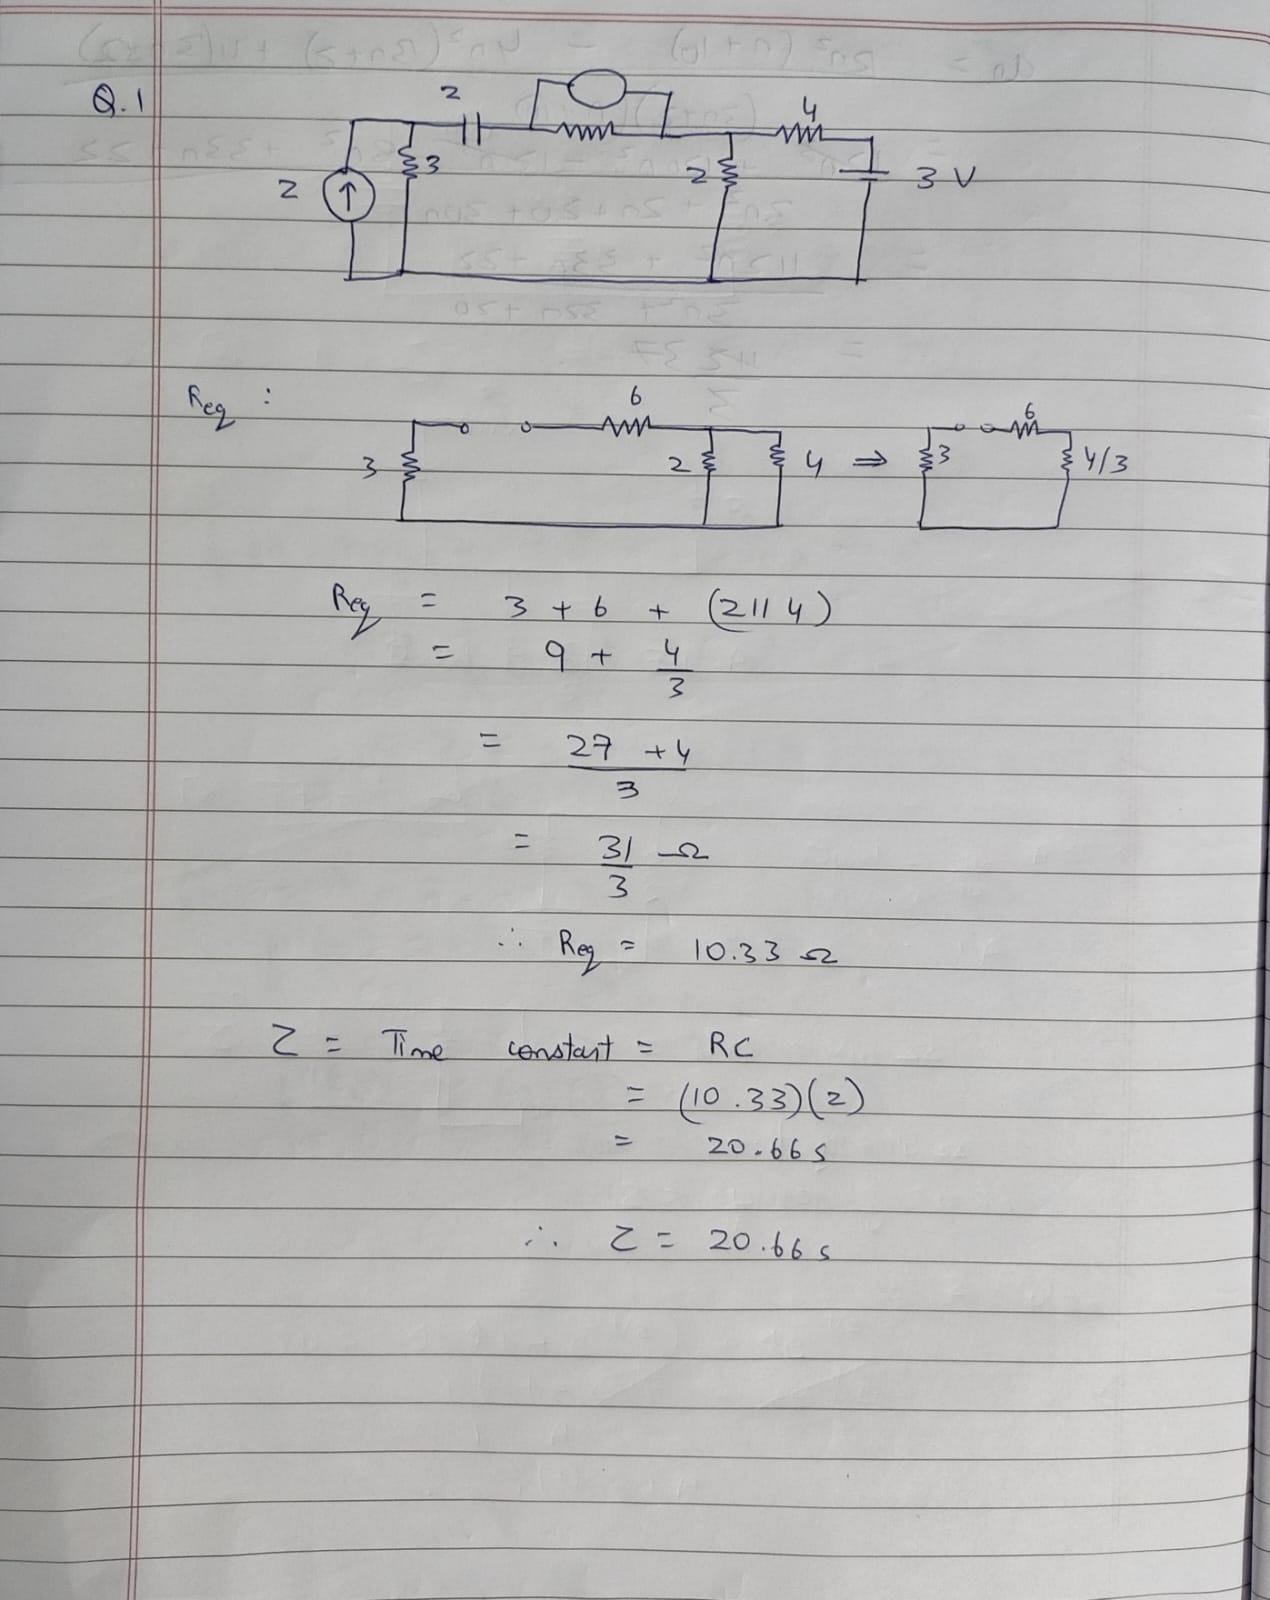 Q.1
2
4
3
2
2
3 V
Req :
6
6
3
2
4 ⇒
3
4/3
Req = 3 + 6 + (2 || 4)
= 9 + 4/3
= 27 + 4
3
= 31/3 Ω
∴ Req = 10.33 Ω
τ = Time constant = RC
= (10.33)(2)
= 20.66 s
∴ τ = 20.66 s